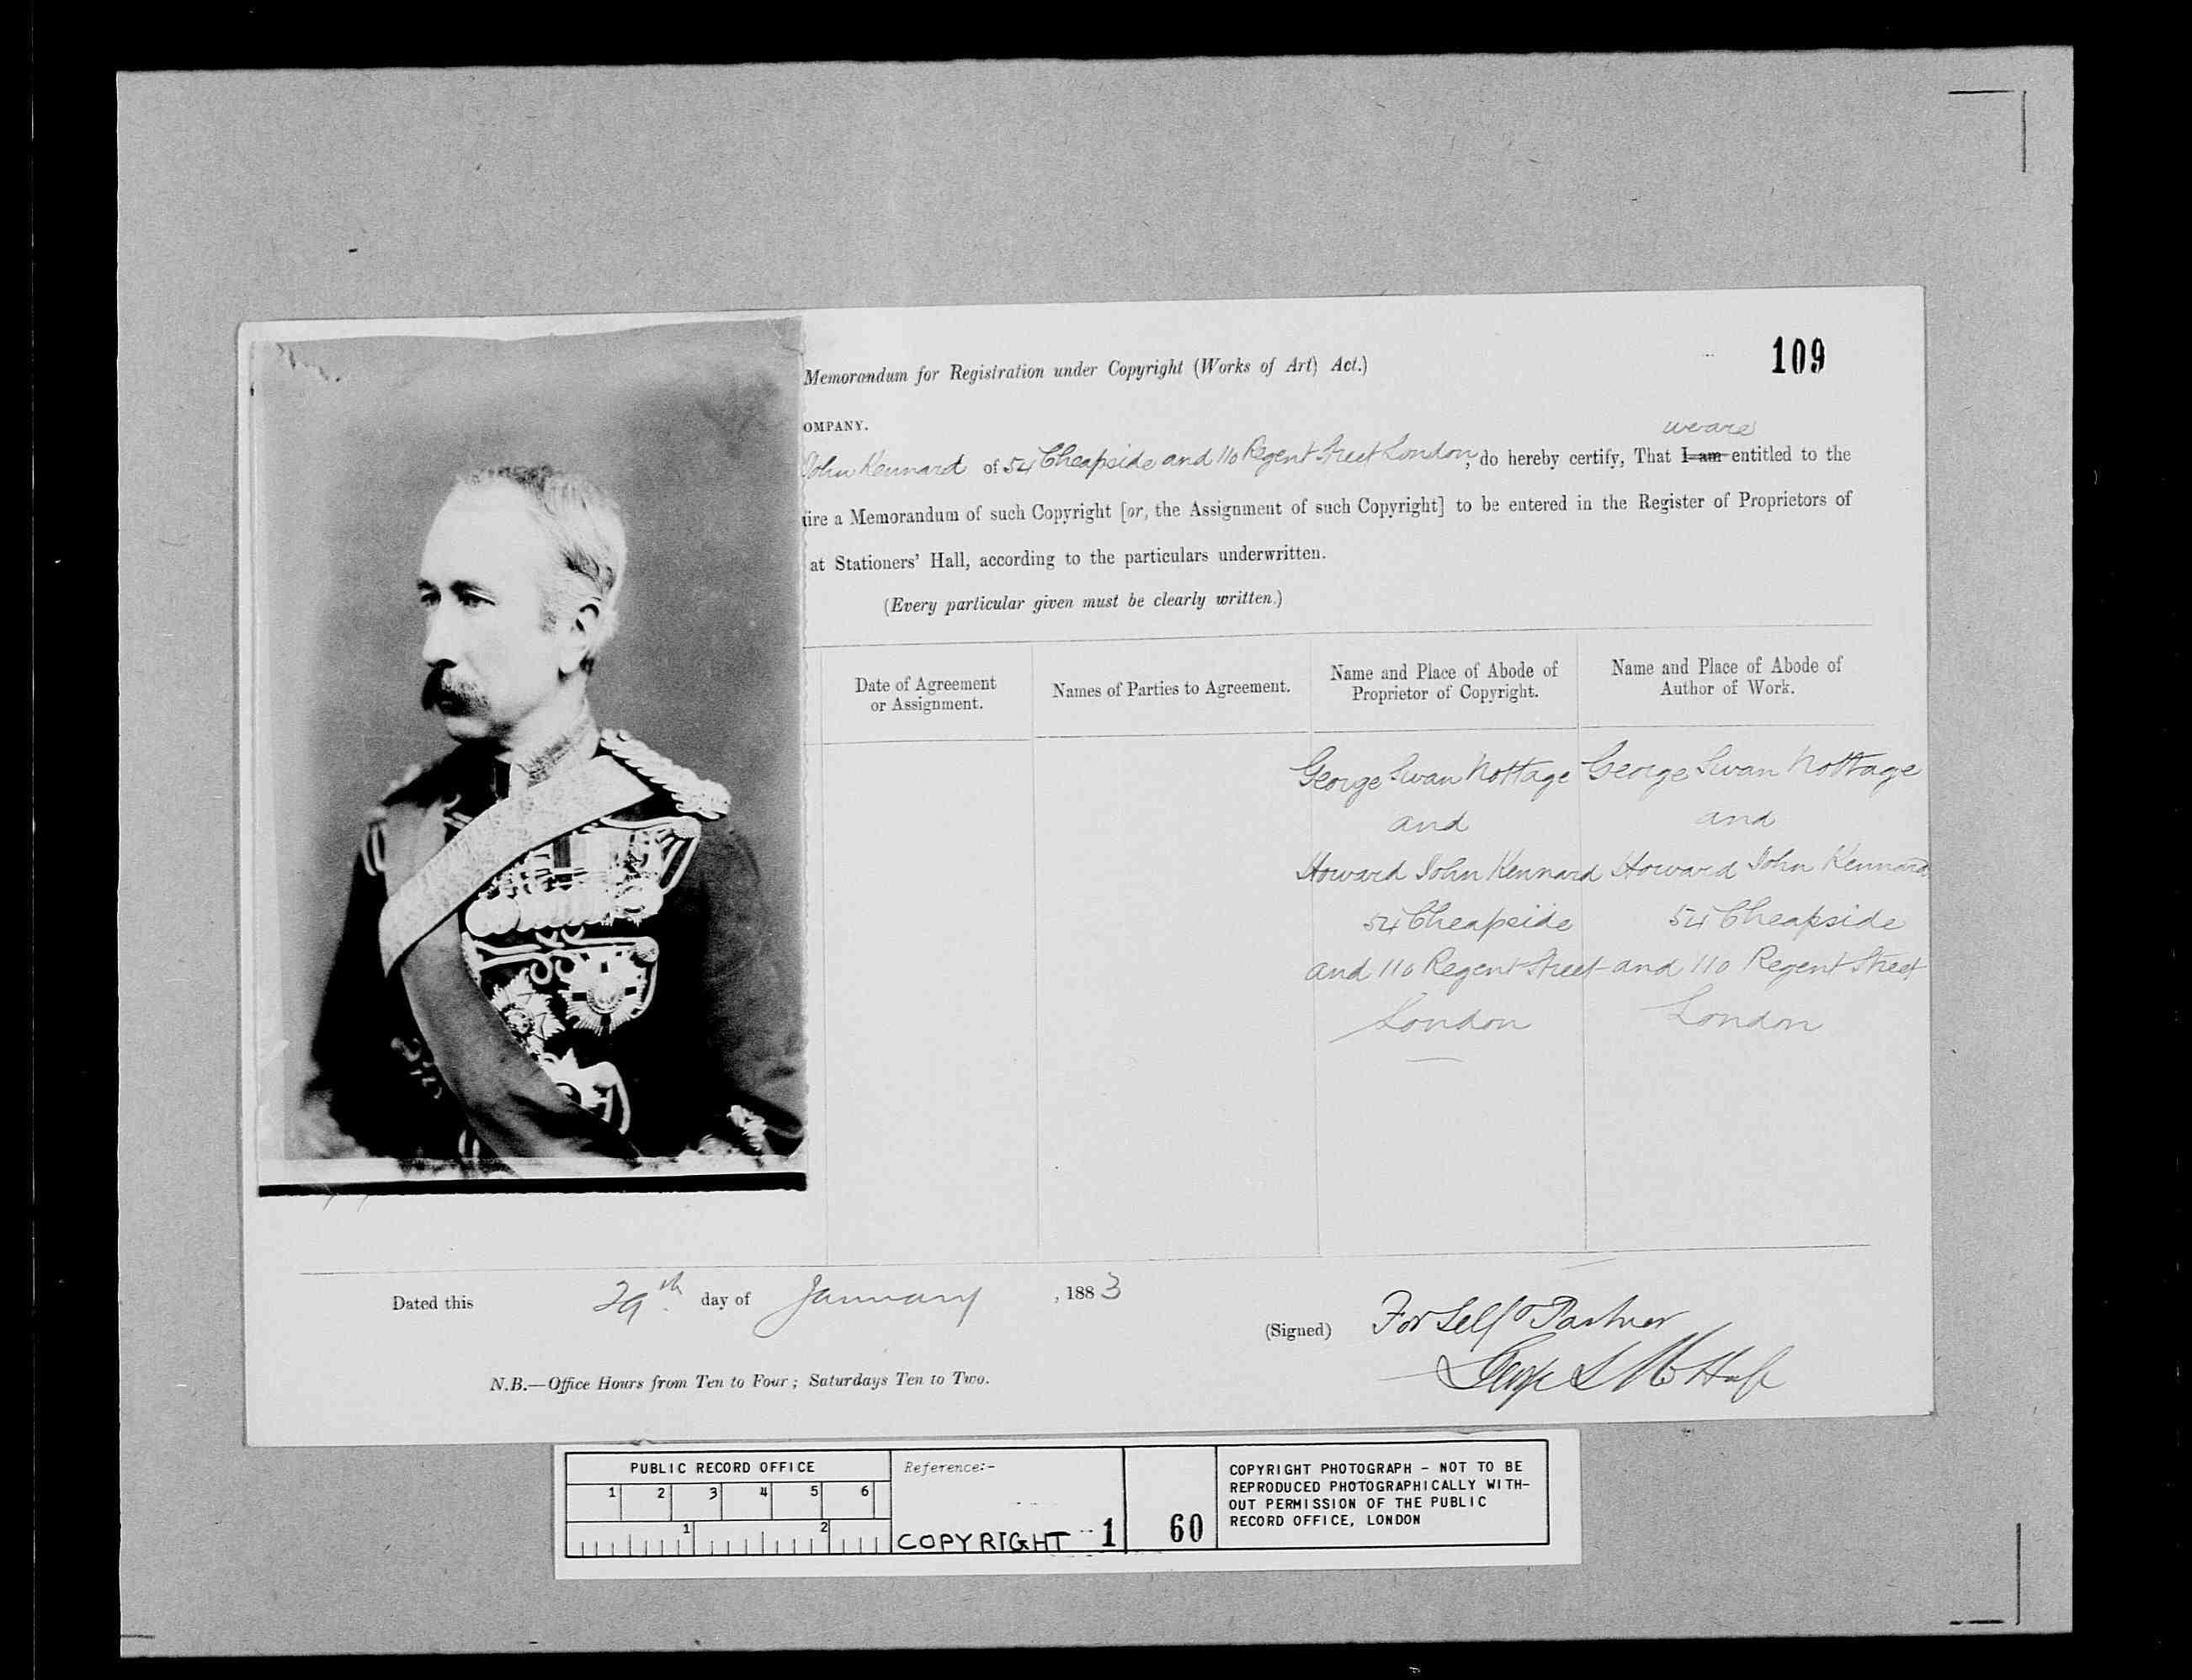 109
Memorandum for Registration under Copyright (Works of Art) Act.)
OMPANY.
we are
John Kennard of 54 Cheapside and 110 Regent Street London, do hereby certify, That I am entitled to the
ire a Memorandum of such Copyright [or, the Assignment of such Copyright] to be entered in the Register of Proprietors of
at Stationers' Hall, according to the particulars underwritten.
(Every particular given must be clearly written.)
Date of Agreement
or Assignment.
Names of Parties to Agreement.
Name and Place of Abode of
Proprietor of Copyright.
Name and Place of Abode of
Author of Work.
George Swan Nottage
and
Howard John Kennard
54 Cheapside
and 110 Regent Street
London
George Swan Nottage
and
Howard John Kennard
54 Cheapside
and 110 Regent Street
London
Dated this 29th day of January, 1883
(Signed) For Self & Partner
George S Nottage
N.B.—Office Hours from Ten to Four; Saturdays Ten to Two.
PUBLIC RECORD OFFICE
1 2 3 4 5 6
1 2
Reference:-
COPYRIGHT 1
60
COPYRIGHT PHOTOGRAPH - NOT TO BE
REPRODUCED PHOTOGRAPHICALLY WITH-
OUT PERMISSION OF THE PUBLIC
RECORD OFFICE, LONDON